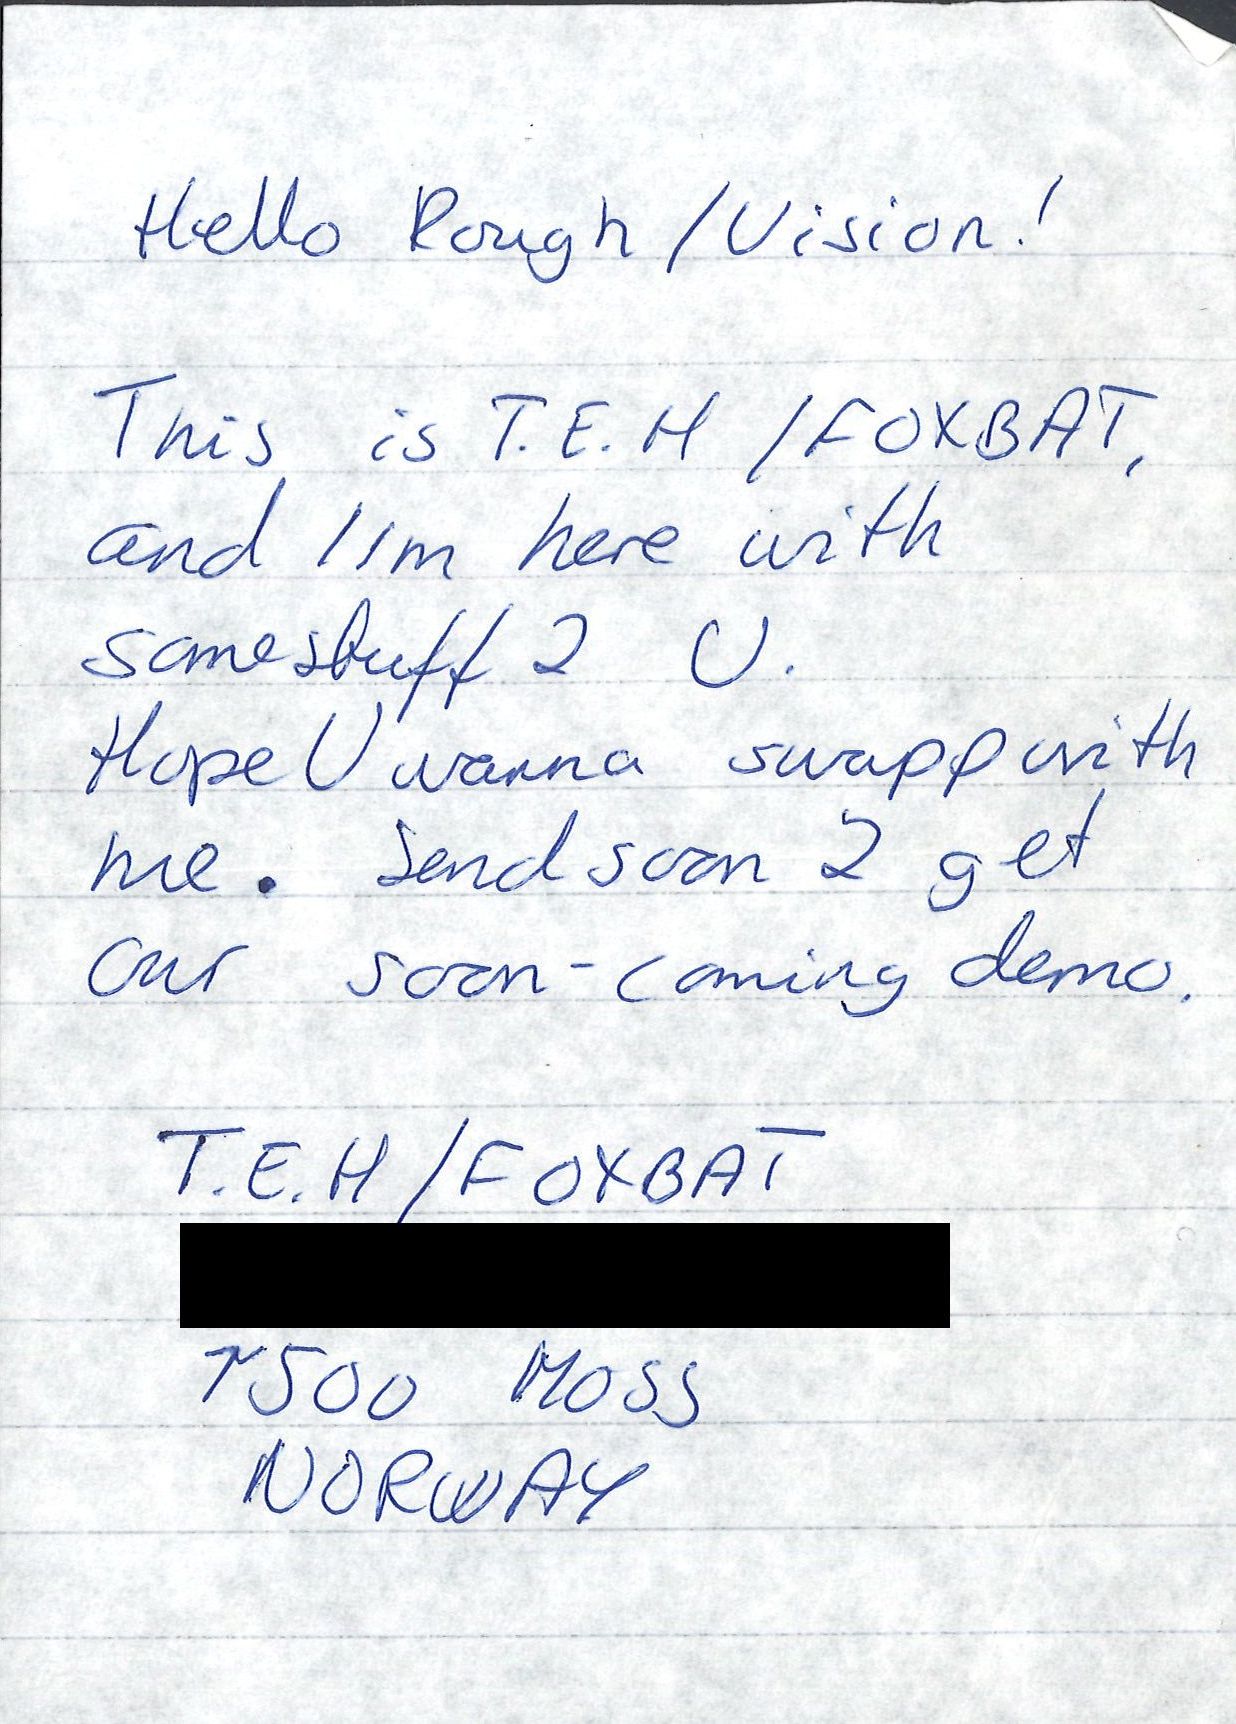 Hello Rough / Vision!
This is T.E.H / FOXBAT,
and I'm here with
some stuff 2 U.
Hope U wanna swapp with
me. Send soon 2 get
our soon-coming demo.
T.E.H / FOXBAT
1500 Moss
NORWAY